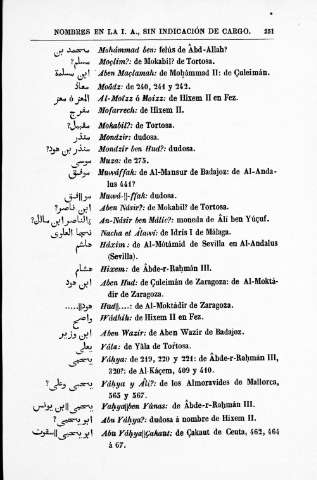 NOMBRES EN LA I. A., SIN INDICACIÓN DE CARGO. 251
محمد بن Mohámmad ben: felús de Âbd-Allah?
مسلم? Moçlim?: de Mokabil? de Tortosa.
ابن مسلمة Aben Maçlamah: de Mohámmad II: de Çuleimán.
معاذ Moâdz: de 240, 241 y 242.
المعز ó معز Al-Moîzz ó Moîzz: de Hixem II en Fez.
مفرج Mofarrech: de Hixem II.
مقبيل? Mokabil?: de Tortosa.
منذر Mondzir: dudosa.
منذر بن هود? Mondzir ben Hud?: dudosa.
موسى Muza: de 275.
موفق Muwáffak: de Al-Mansur de Badajoz: de Al-Anda-
lus 441?
موا||فق Muwá-||-ffak: dudosa.
ابن ناصر? Aben Násir?: de Mokabil? de Tortosa.
الناصر ابن مالك? An-Násir ben Málic?: moneda de Âlí ben Yúçuf.
نجا العلوى Nacha el Âlawí: de Idris I de Málaga.
هاشم Háxim: de Al-Môtámid de Sevilla en Al-Andalus
(Sevilla).
هشام Hixem: de Âbde-r-Rahmán III.
ابن هود Aben Hud: de Çuleimán de Zaragoza: de Al-Moktá-
dir de Zaragoza.
هود||..... Hud||....: de Al-Moktádir de Zaragoza.
واضح Wádhih: de Hixem II en Fez.
ابن وزير Aben Wazir: de Aben Wazir de Badajoz.
يعلى Yâla: de Yâla de Tortosa.
يحيى Yáhya: de 219, 220 y 221: de Âbde-r-Rahmán III,
320?: de Al-Káçem, 409 y 410.
يحيى وعلى? Yáhya y Âlí?: de los Almoravides de Mallorca,
565 y 567.
يحيى||ابن يونس Yahya||ben Yúnas: de Âbde-r-Rahmán III.
ابو يحيى? Abu Yáhya?: dudosa á nombre de Hixem II.
ابو يحيى||سقوت Abu Yáhya||Çakaut: de Çakaut de Ceuta, 462, 464
á 67.